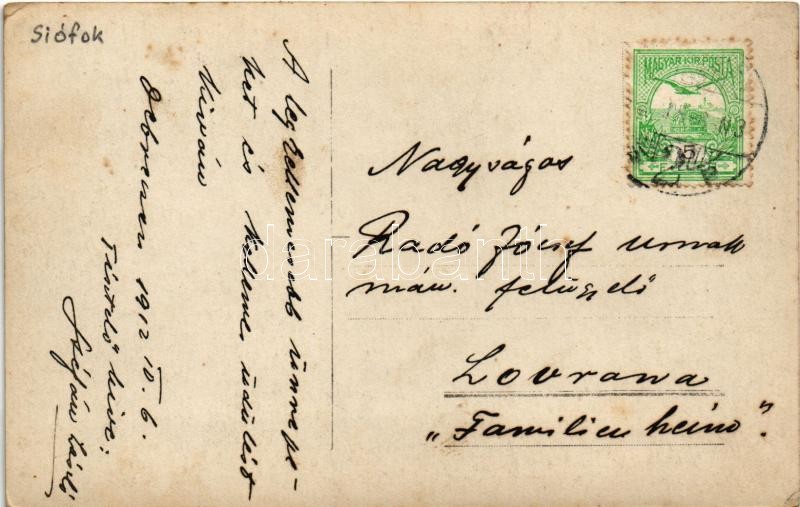 Siófok
A legkellemesebb ünnepe-
ket és kellemes üdülést
kíván
Debrecen 1912 IV. 6.
Tisztelő híve:
MAGYAR KIR. POSTA
Nagyságos
Radó József urnak
máv. felügyelő
Lovrana
"Familienheim".
darabanth